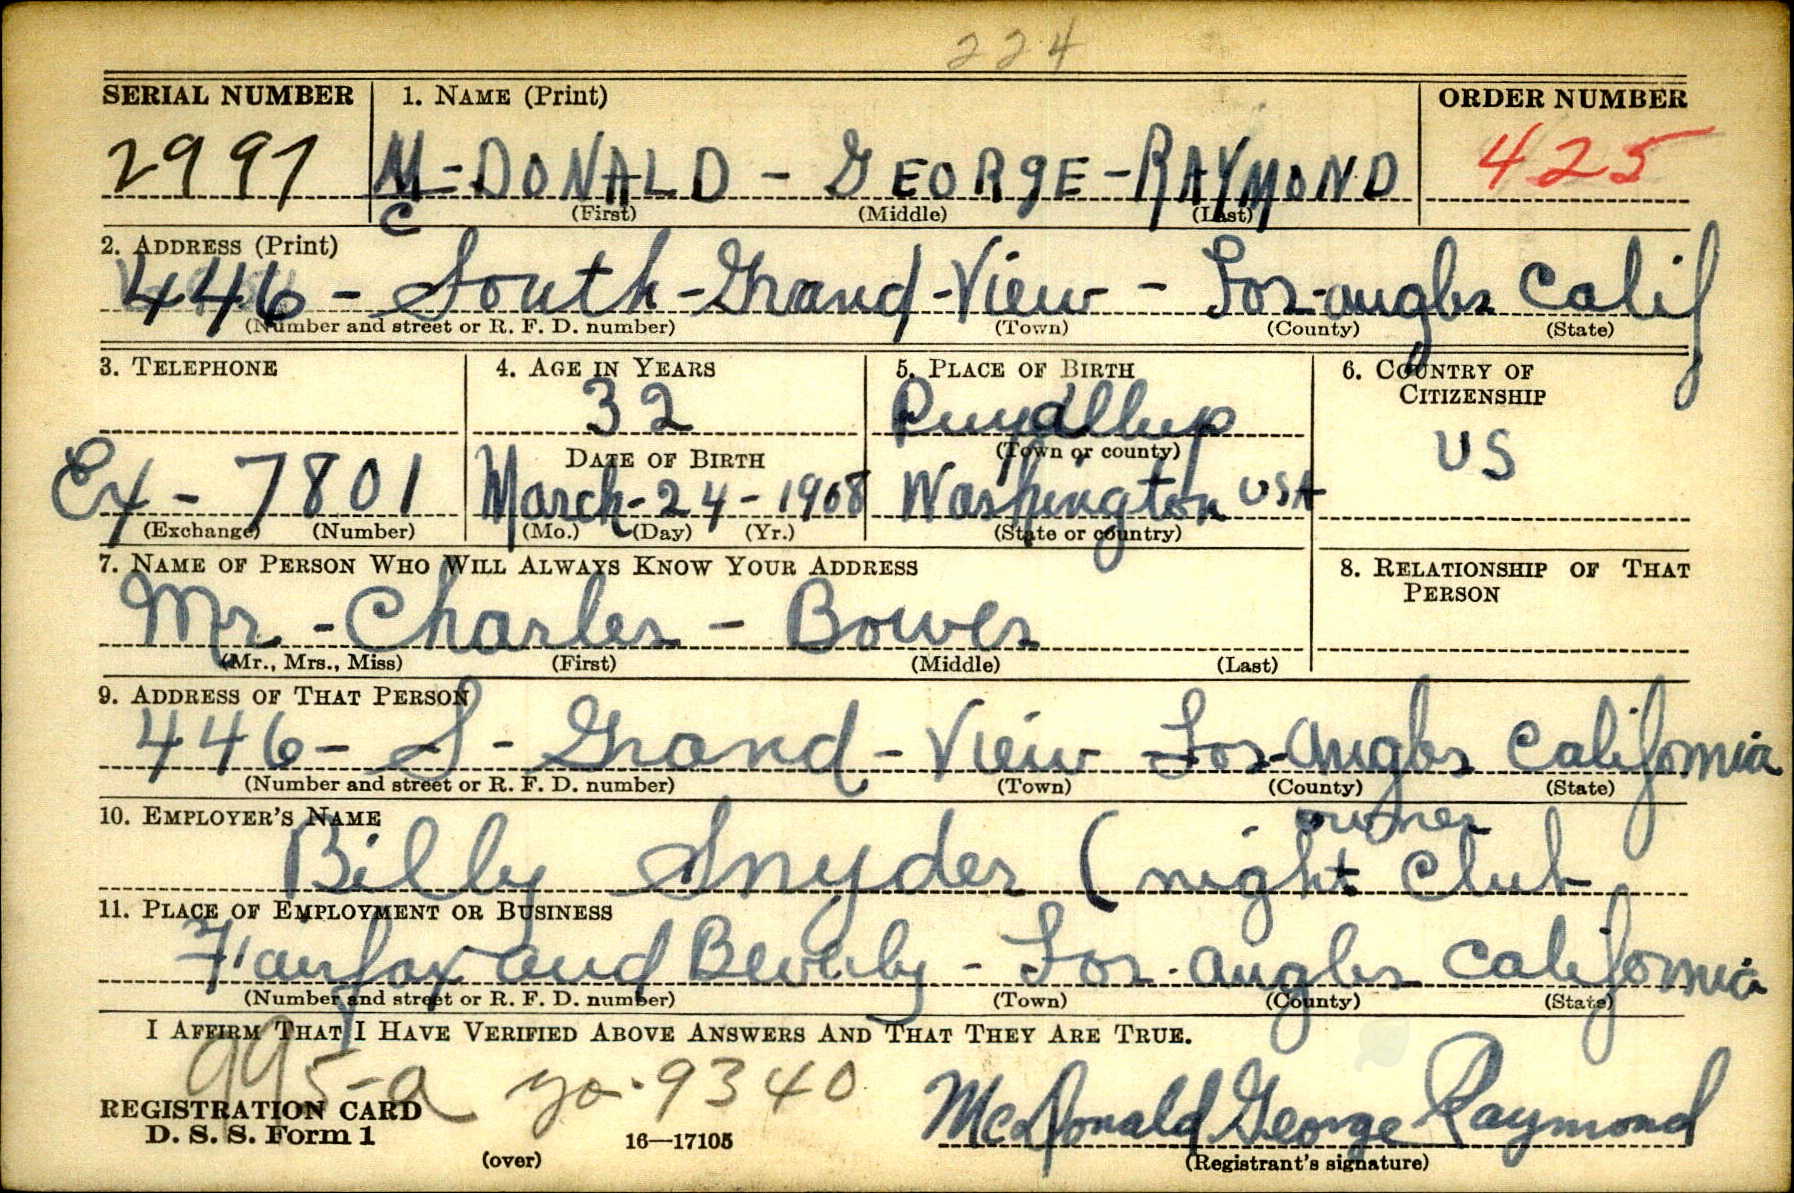 224
SERIAL NUMBER 1. NAME (Print) ORDER NUMBER
2991 Mc-DONALD - GEORGE-RAYMOND 425
(First) (Middle) (Last)
2. ADDRESS (Print)
446 - South-Grand-View - Los-angles Calif
(Number and street or R. F. D. number) (Town) (County) (State)
3. TELEPHONE 4. AGE IN YEARS 5. PLACE OF BIRTH 6. COUNTRY OF CITIZENSHIP
32 Puyallup US
DATE OF BIRTH (Town or county)
Ex - 7801 March-24-1908 Washington USA
(Exchange) (Number) (Mo.) (Day) (Yr.) (State or country)
7. NAME OF PERSON WHO WILL ALWAYS KNOW YOUR ADDRESS 8. RELATIONSHIP OF THAT PERSON
Mr. - Charles - Bowes
(Mr., Mrs., Miss) (First) (Middle) (Last)
9. ADDRESS OF THAT PERSON
446 - S - Grand - View Los-Angles California
(Number and street or R. F. D. number) (Town) (County) (State)
10. EMPLOYER'S NAME owner
Billy Snyder (night Club
11. PLACE OF EMPLOYMENT OR BUSINESS
Fairfax and Beverly - Los-angles California
(Number and street or R. F. D. number) (Town) (County) (State)
I AFFIRM THAT I HAVE VERIFIED ABOVE ANSWERS AND THAT THEY ARE TRUE.
995-a yo-9340
REGISTRATION CARD McDonald George Raymond
D. S. S. Form 1 16—17105
(over) (Registrant's signature)